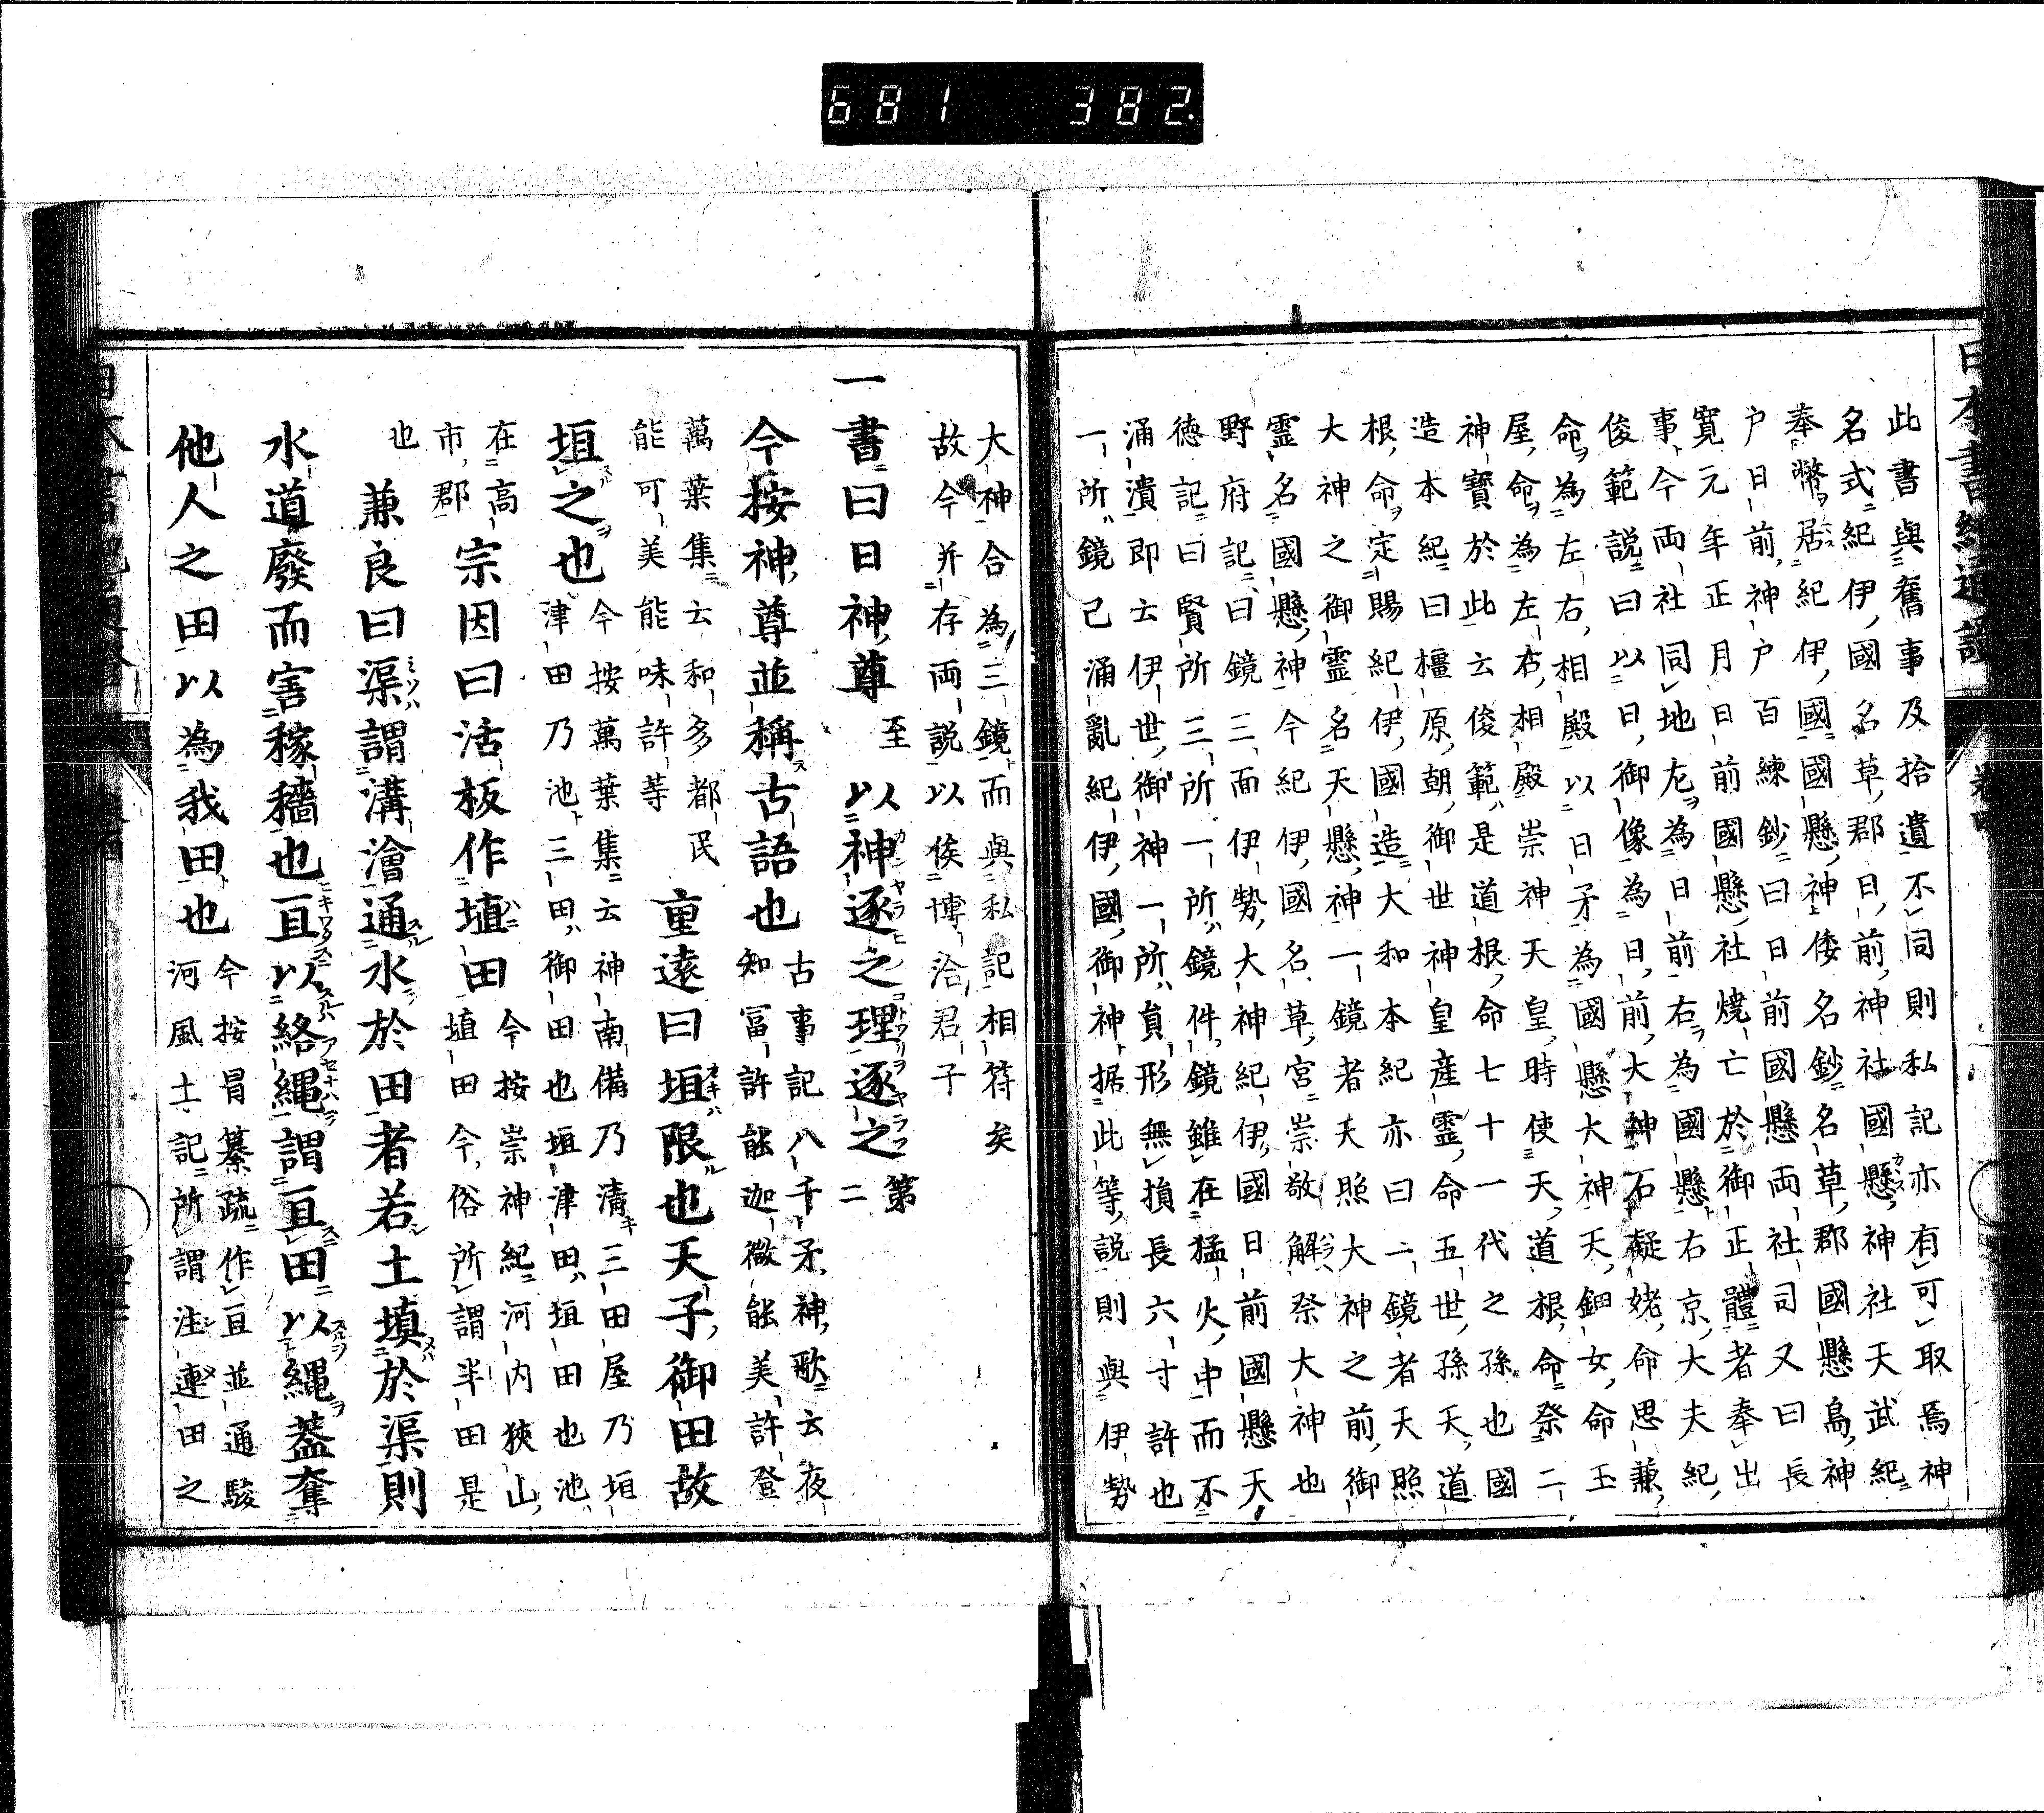 681 382
此書與舊事及拾遺不同則私記亦有可取焉神
名式紀伊國名草郡日前神社國懸神社天武紀
奉幣居紀伊國國懸神倭名鈔名草郡國懸島神
戸日前神戸百練鈔曰日前國懸兩社司又曰長
寛元年正月日前國懸社燒亡於御正體者奉出
事今兩社同地左為日前右為國懸右京大夫紀
俊範説曰以日御像為日前大神石凝姥命思兼
命為左右相殿以日矛為國懸大神天鈿女命玉
屋命為左右相殿崇神天皇時使天道根命祭二
神寶於此云俊範是道根命七十一代之孫也國
造本紀曰橿原朝御世神皇産靈命五世孫天道
根命定賜紀伊國造大和本紀亦曰二鏡者天照
大神之御靈名天懸神一鏡者天照大神之前御
靈名國懸神今紀伊國名草宮崇敬解祭大神也
野府記曰鏡三面伊勢大神紀伊國日前國懸天
徳記曰賢所三所一所鏡件鏡雖在猛火中而不
涌潰即云伊世御神一所眞形無損長六寸許也
一所鏡已涌亂紀伊國御神据此等説則與伊勢
大神合為三鏡而與私記相符矣
故今并存両説以俟博洽君子
一書曰日神尊至以神逐之理逐之第二
今按神尊並稱古語也古事記八千矛神歌云夜
知冨許能迦微能美許登
萬葉集云和多都民
能可美能味許等
重遠曰垣限也天子御田故
垣之也今按萬葉集云神南備乃清三田屋乃垣
津田乃池三田御田也垣津田垣田也池
在高
市郡
宗因曰活板作埴田今按崇神紀河内狹山
埴田今俗所謂半田是
也
兼良曰渠謂溝澮通水於田者若土填於渠則
水道廢而害稼穡也亘以絡縄謂亘田以縄蓋奪
他人之田以為我田也今按冒纂疏作亘並通駿
河風土記所謂注連田之